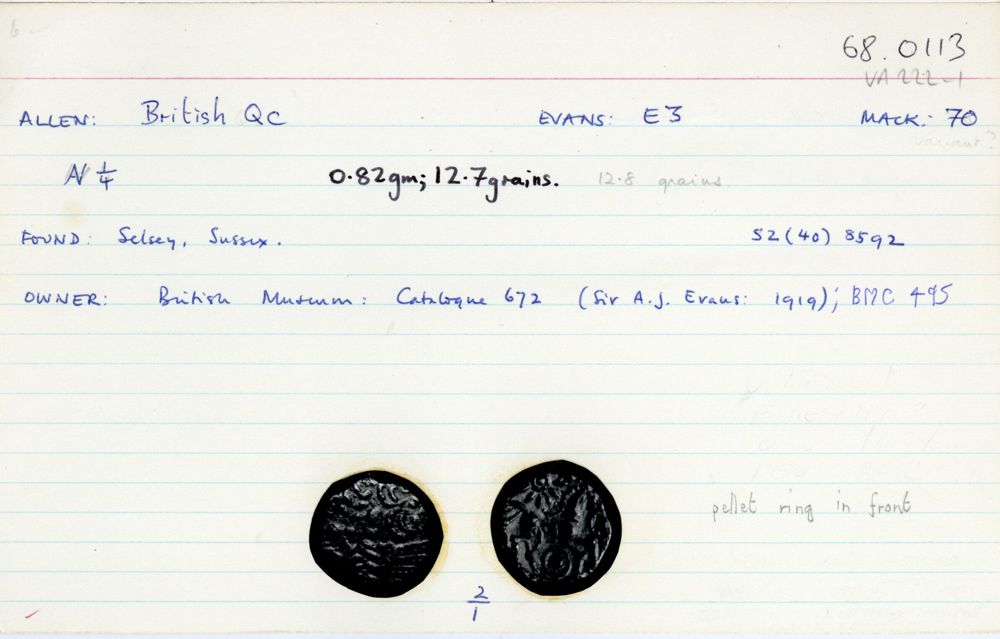 68.0113
VA 222-1
ALLEN: British QC EVANS: E3 MACK: 70
variant?
N 1/4 0.82gm; 12.7grains. 12.8 grains.
FOUND: Selsey, Sussex. SZ(40) 8592
OWNER: British Museum: Catalogue 672 (Sir A.J. Evans: 1919); BMC 495
pellet ring in front
2/1